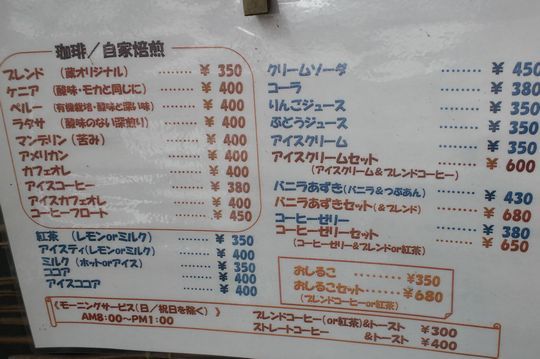 珈琲／自家焙煎
ブレンド（蔵オリジナル） ……… ¥ 350
ケニア（酸味・モカと同じに） …… ¥ 400
ペルー（有機栽培・酸味と深い味） ¥ 400
ラタサ（酸味のない深煎り） …… ¥ 400
マンデリン（苦み） ……… ¥ 400
アメリカン ……… ¥ 400
カフェオレ ……… ¥ 400
アイスコーヒー ……… ¥ 380
アイスカフェオレ ……… ¥ 400
コーヒーフロート ……… ¥ 450
紅茶（レモンorミルク） ……… ¥ 350
アイスティ（レモンorミルク） …… ¥ 400
ミルク（ホットorアイス） ……… ¥ 350
ココア ……… ¥ 400
アイスココア ……… ¥ 400
クリームソーダ ……… ¥ 450
コーラ ……… ¥ 380
りんごジュース ……… ¥ 350
ぶどうジュース ……… ¥ 350
アイスクリーム ……… ¥ 350
アイスクリームセット ……… ¥ 600
（アイスクリーム&ブレンドコーヒー）
バニラあずき（バニラ&つぶあん） …… ¥ 430
バニラあずきセット（&ブレンド） …… ¥ 680
コーヒーゼリー ……… ¥ 380
コーヒーゼリーセット ……… ¥ 650
（コーヒーゼリー&ブレンドor紅茶）
おしるこ ……… ¥350
おしるこセット ……… ¥680
（ブレンドコーヒーor紅茶）
《モーニングサービス（日／祝日を除く）》
AM8:00～PM1:00
ブレンドコーヒー（or紅茶）&トースト ¥ 300
ストレートコーヒー &トースト ¥ 400